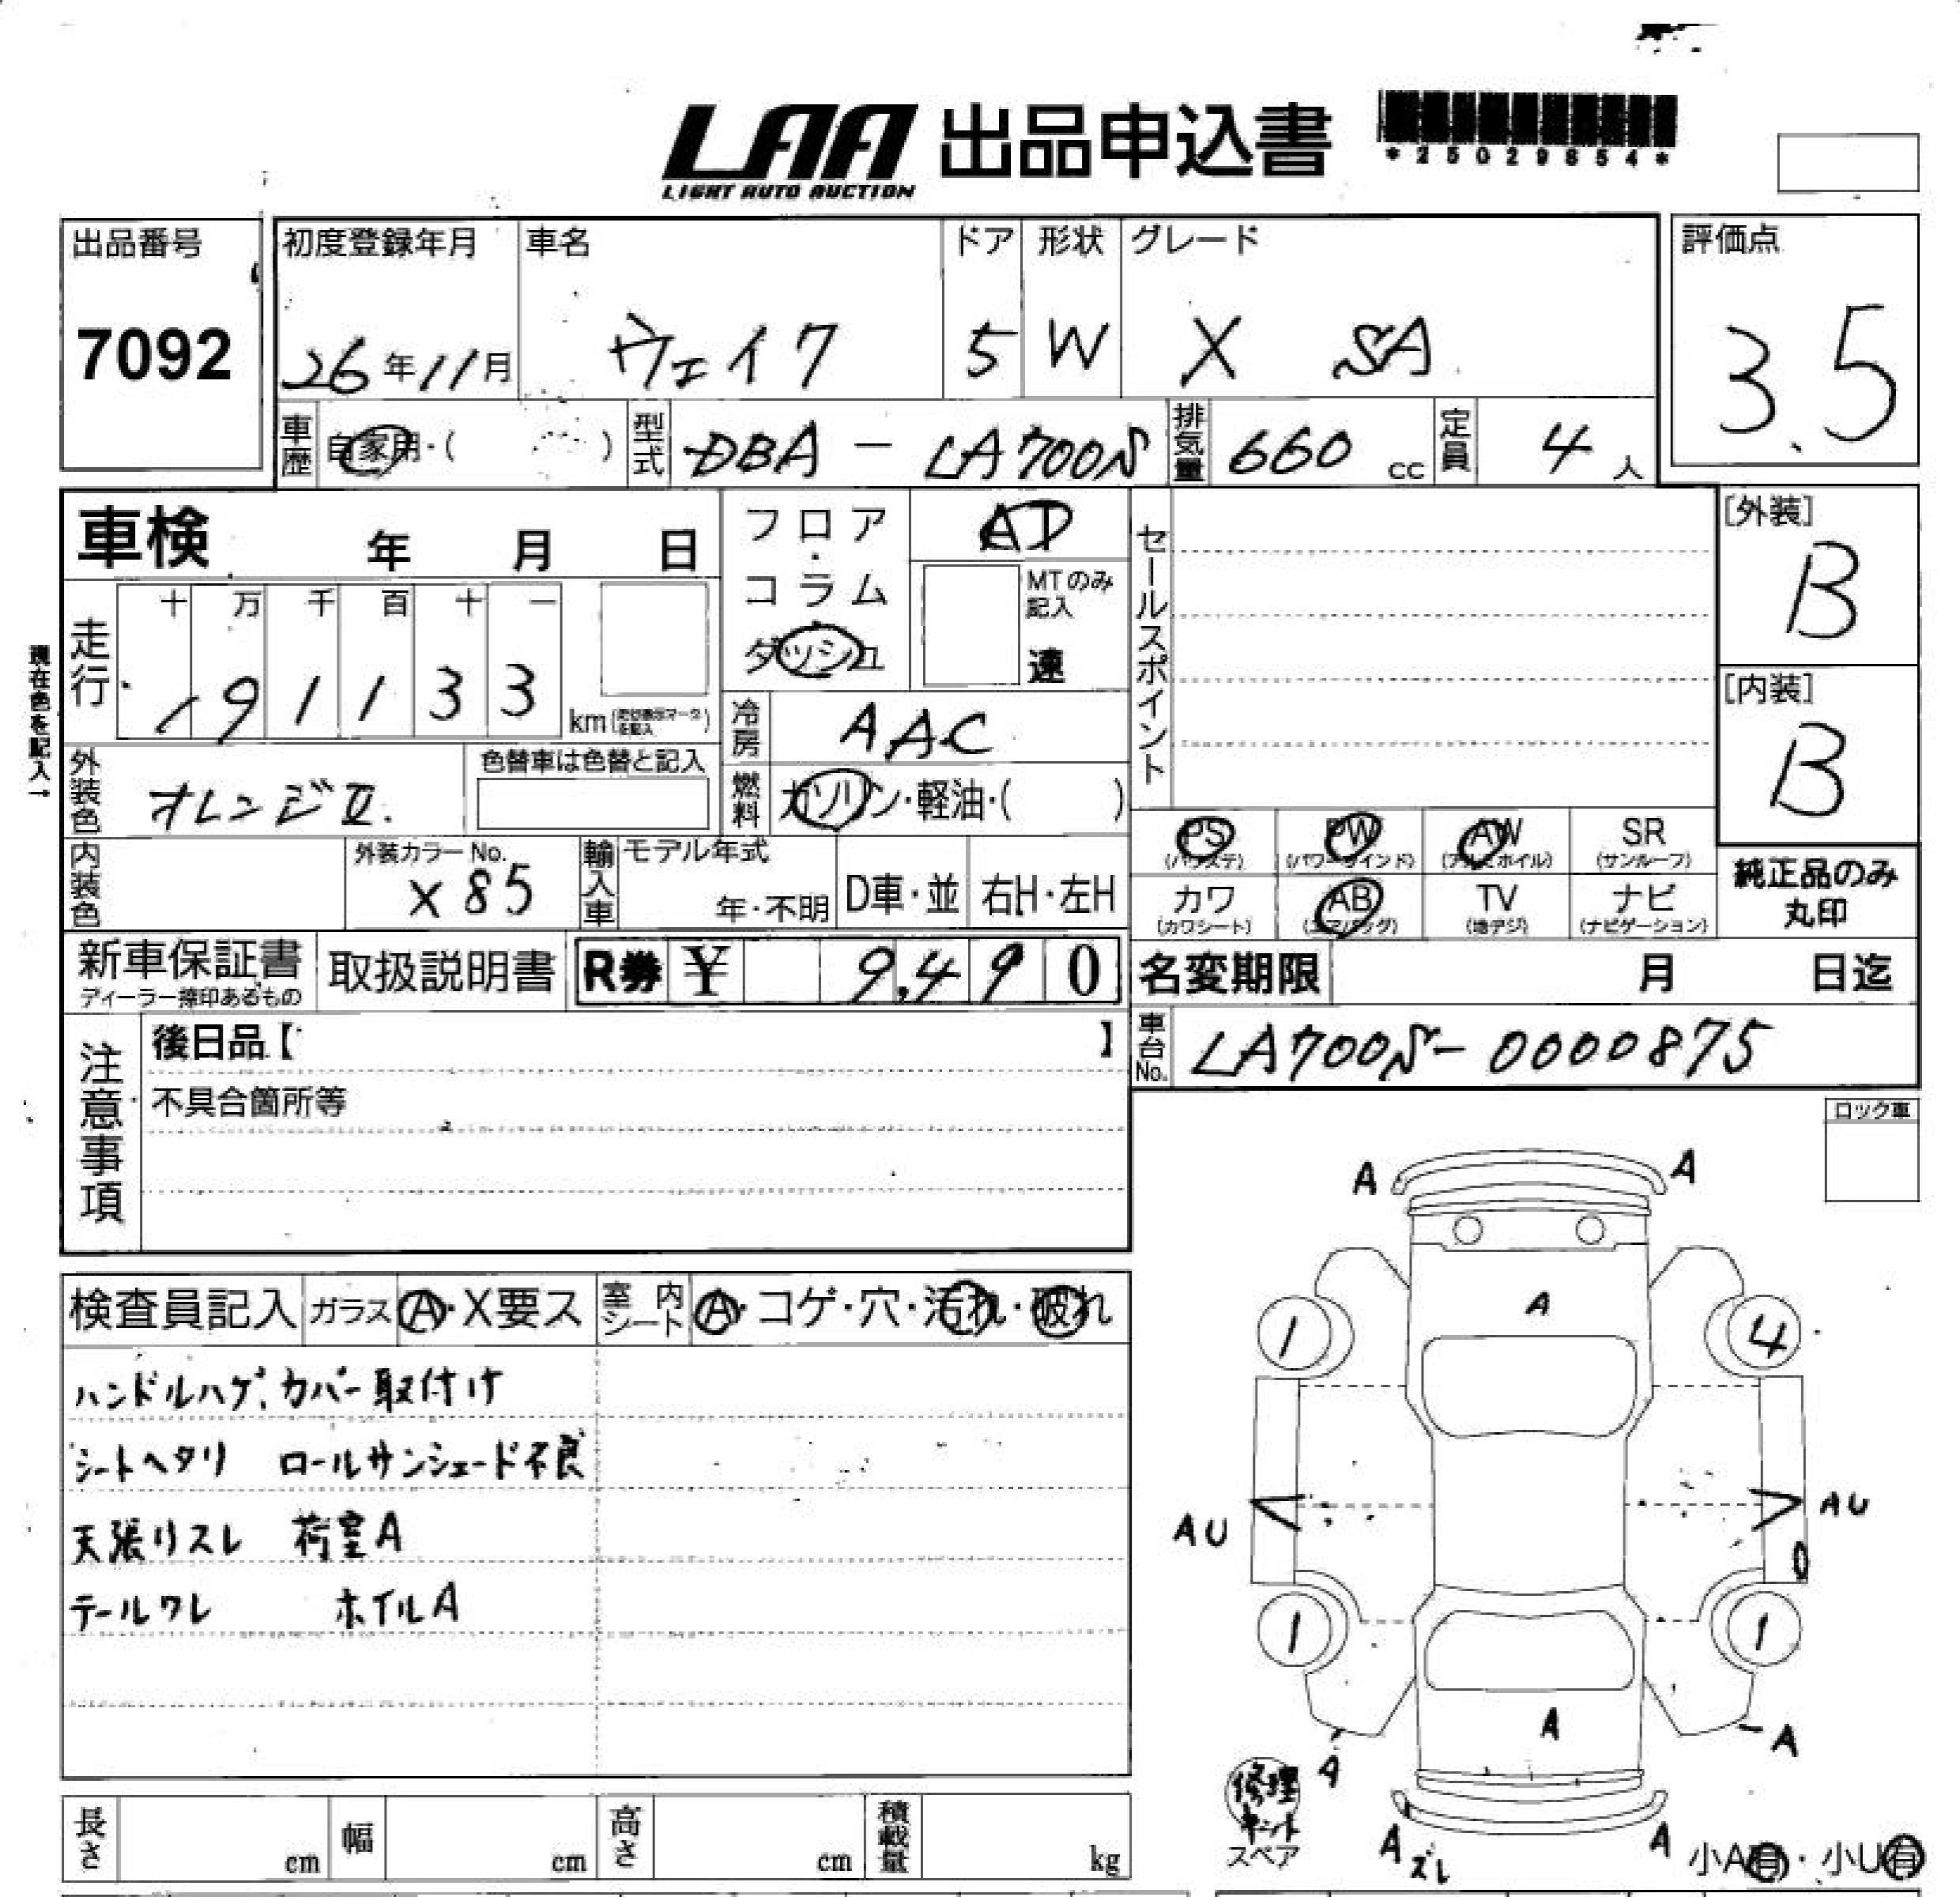 LAA 出品申込書
LIGHT AUTO AUCTION
*25029854*
出品番号 初度登録年月 車名 ドア 形状 グレード 評価点
7092 26年11月 ウェイク 5 W X SA 3.5
車歴 自家用・( ) 型式 DBA - LA700S 排気量 660 cc 定員 4 人
車検 年 月 日
フロア・コラム・ダッシュ AT
MTのみ記入 速
セールスポイント
[外装] B
[内装] B
現在色を記入→
走行 十 万 千 百 十 一
91133 km
冷房 AAC
外装色 オレンジII 色替車は色替と記入
燃料 ガソリン・軽油・( )
PS PW AW SR
(パワステ) (パワーウインド) (アルミホイル) (サンルーフ)
カワ AB TV ナビ
(カワシート) (エアバッグ) (地デジ) (ナビゲーション)
純正品のみ
丸印
内装色 外装カラーNo. X85 輸入車 モデル年式 年・不明 D車・並 右H・左H
新車保証書 取扱説明書 R券 ¥ 9,490 名変期限 月 日迄
ディーラー捺印あるもの
注意事項
後日品【 】
車台No. LA700S-0000875
不具合箇所等
ロック車
A A
検査員記入 ガラス A・X要ス 室内シート A・コゲ・穴・汚れ・破れ
A
1 4
ハンドルハゲ、カバー取付け
シートヘタリ ロールサンシェード不良
AU AU
天張りスレ 荷室A
0
テールワレ ホイルA
1 1
A
A A
修理キット
スペア
A ズレ A
小A有・小U有
長さ cm 幅 cm 高さ cm 積載量 kg